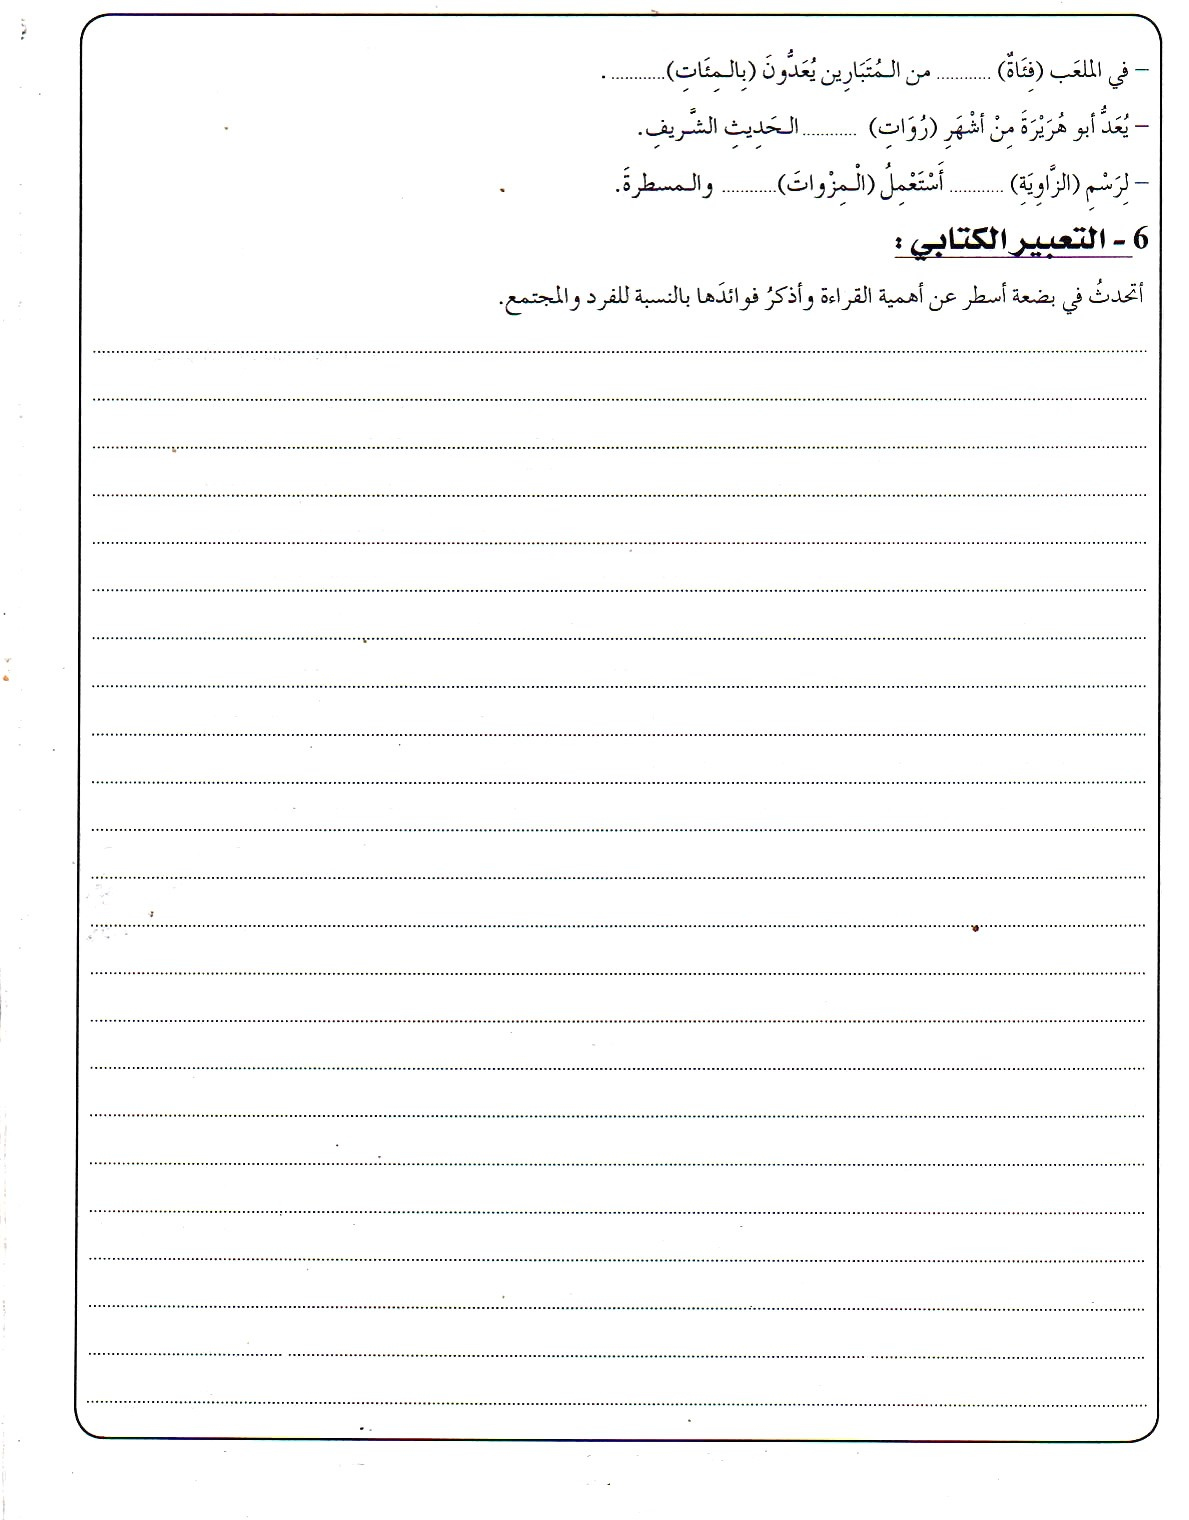 – في الملعَب (فِئَاةٌ) ............ من الـمُتَبَارِين يُعَدُّونَ (بِالـمِئَاتِ)............ .
– يُعَدُّ أبو هُرَيْرَةَ مِنْ أشْهَرِ (رُوَاتِ) ............ الـحَدِيثِ الشَّريفِ.
– لِرَسْمِ (الزَّاوِيَةِ) ............ أَسْتَعْمِلُ (الْـمِزْواتَ)............ والـمسطرةَ.
6 - التعبير الكتابي :
أتحدثُ في بضعة أسطر عن أهمية القراءة وأذكرُ فوائدَها بالنسبة للفرد والمجتمع.